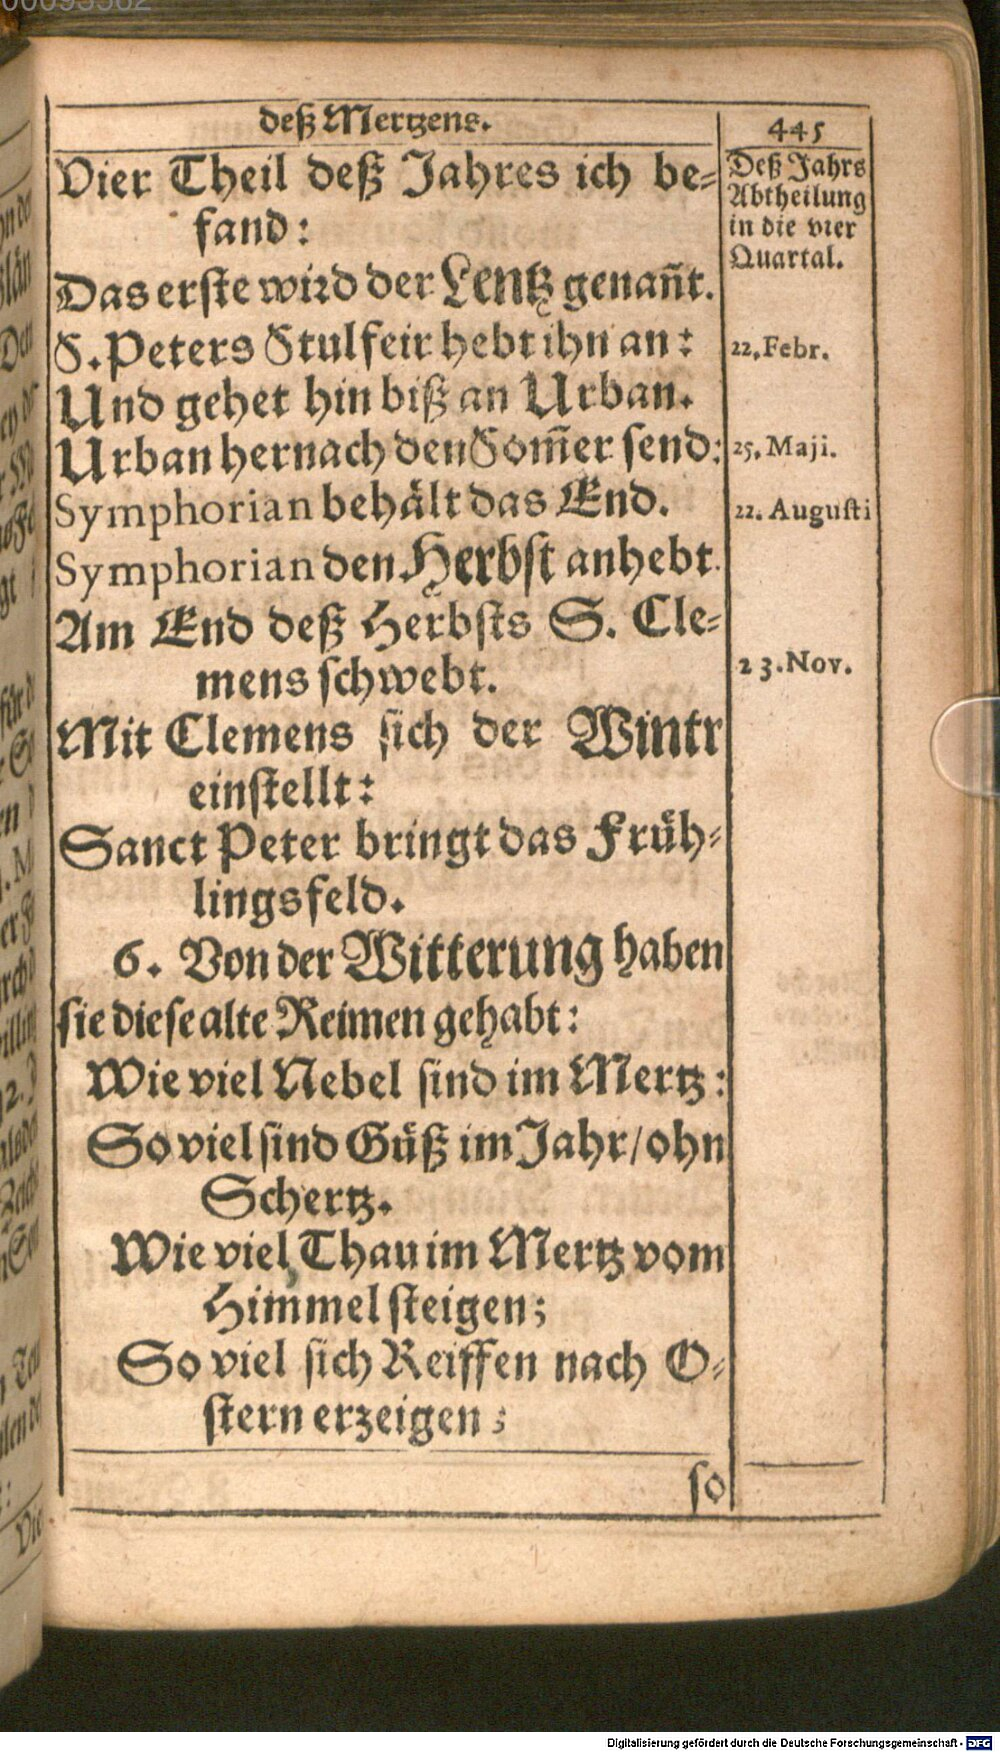 deß Mertzens.
445
Vier Theil deß Jahres ich be-
fand:
Das erste wird der Lentz genañt.
S. Peters Stulfeir hebt ihn an:
Und gehet hin biß an Urban.
Urban hernach den Som̃er send:
Symphorian behält das End.
Symphorian den Herbst anhebt.
Am End deß Herbsts S. Cle-
mens schwebt.
Mit Clemens sich der Wintr
einstellt:
Sanct Peter bringt das Früh-
lingsfeld.
6. Von der Witterung haben
sie diese alte Reimen gehabt:
Wie viel Nebel sind im Mertz:
So viel sind Güß im Jahr/ohn
Schertz.
Wie viel Thau im Mertz vom
Himmel steigen;
So viel sich Reiffen nach O-
stern erzeigen;
so
Deß Jahrs
Abtheilung
in die vier
Quartal.
22. Febr.
25. Maji.
22. Augusti
23. Nov.
Digitalisierung gefördert durch die Deutsche Forschungsgemeinschaft - DFG